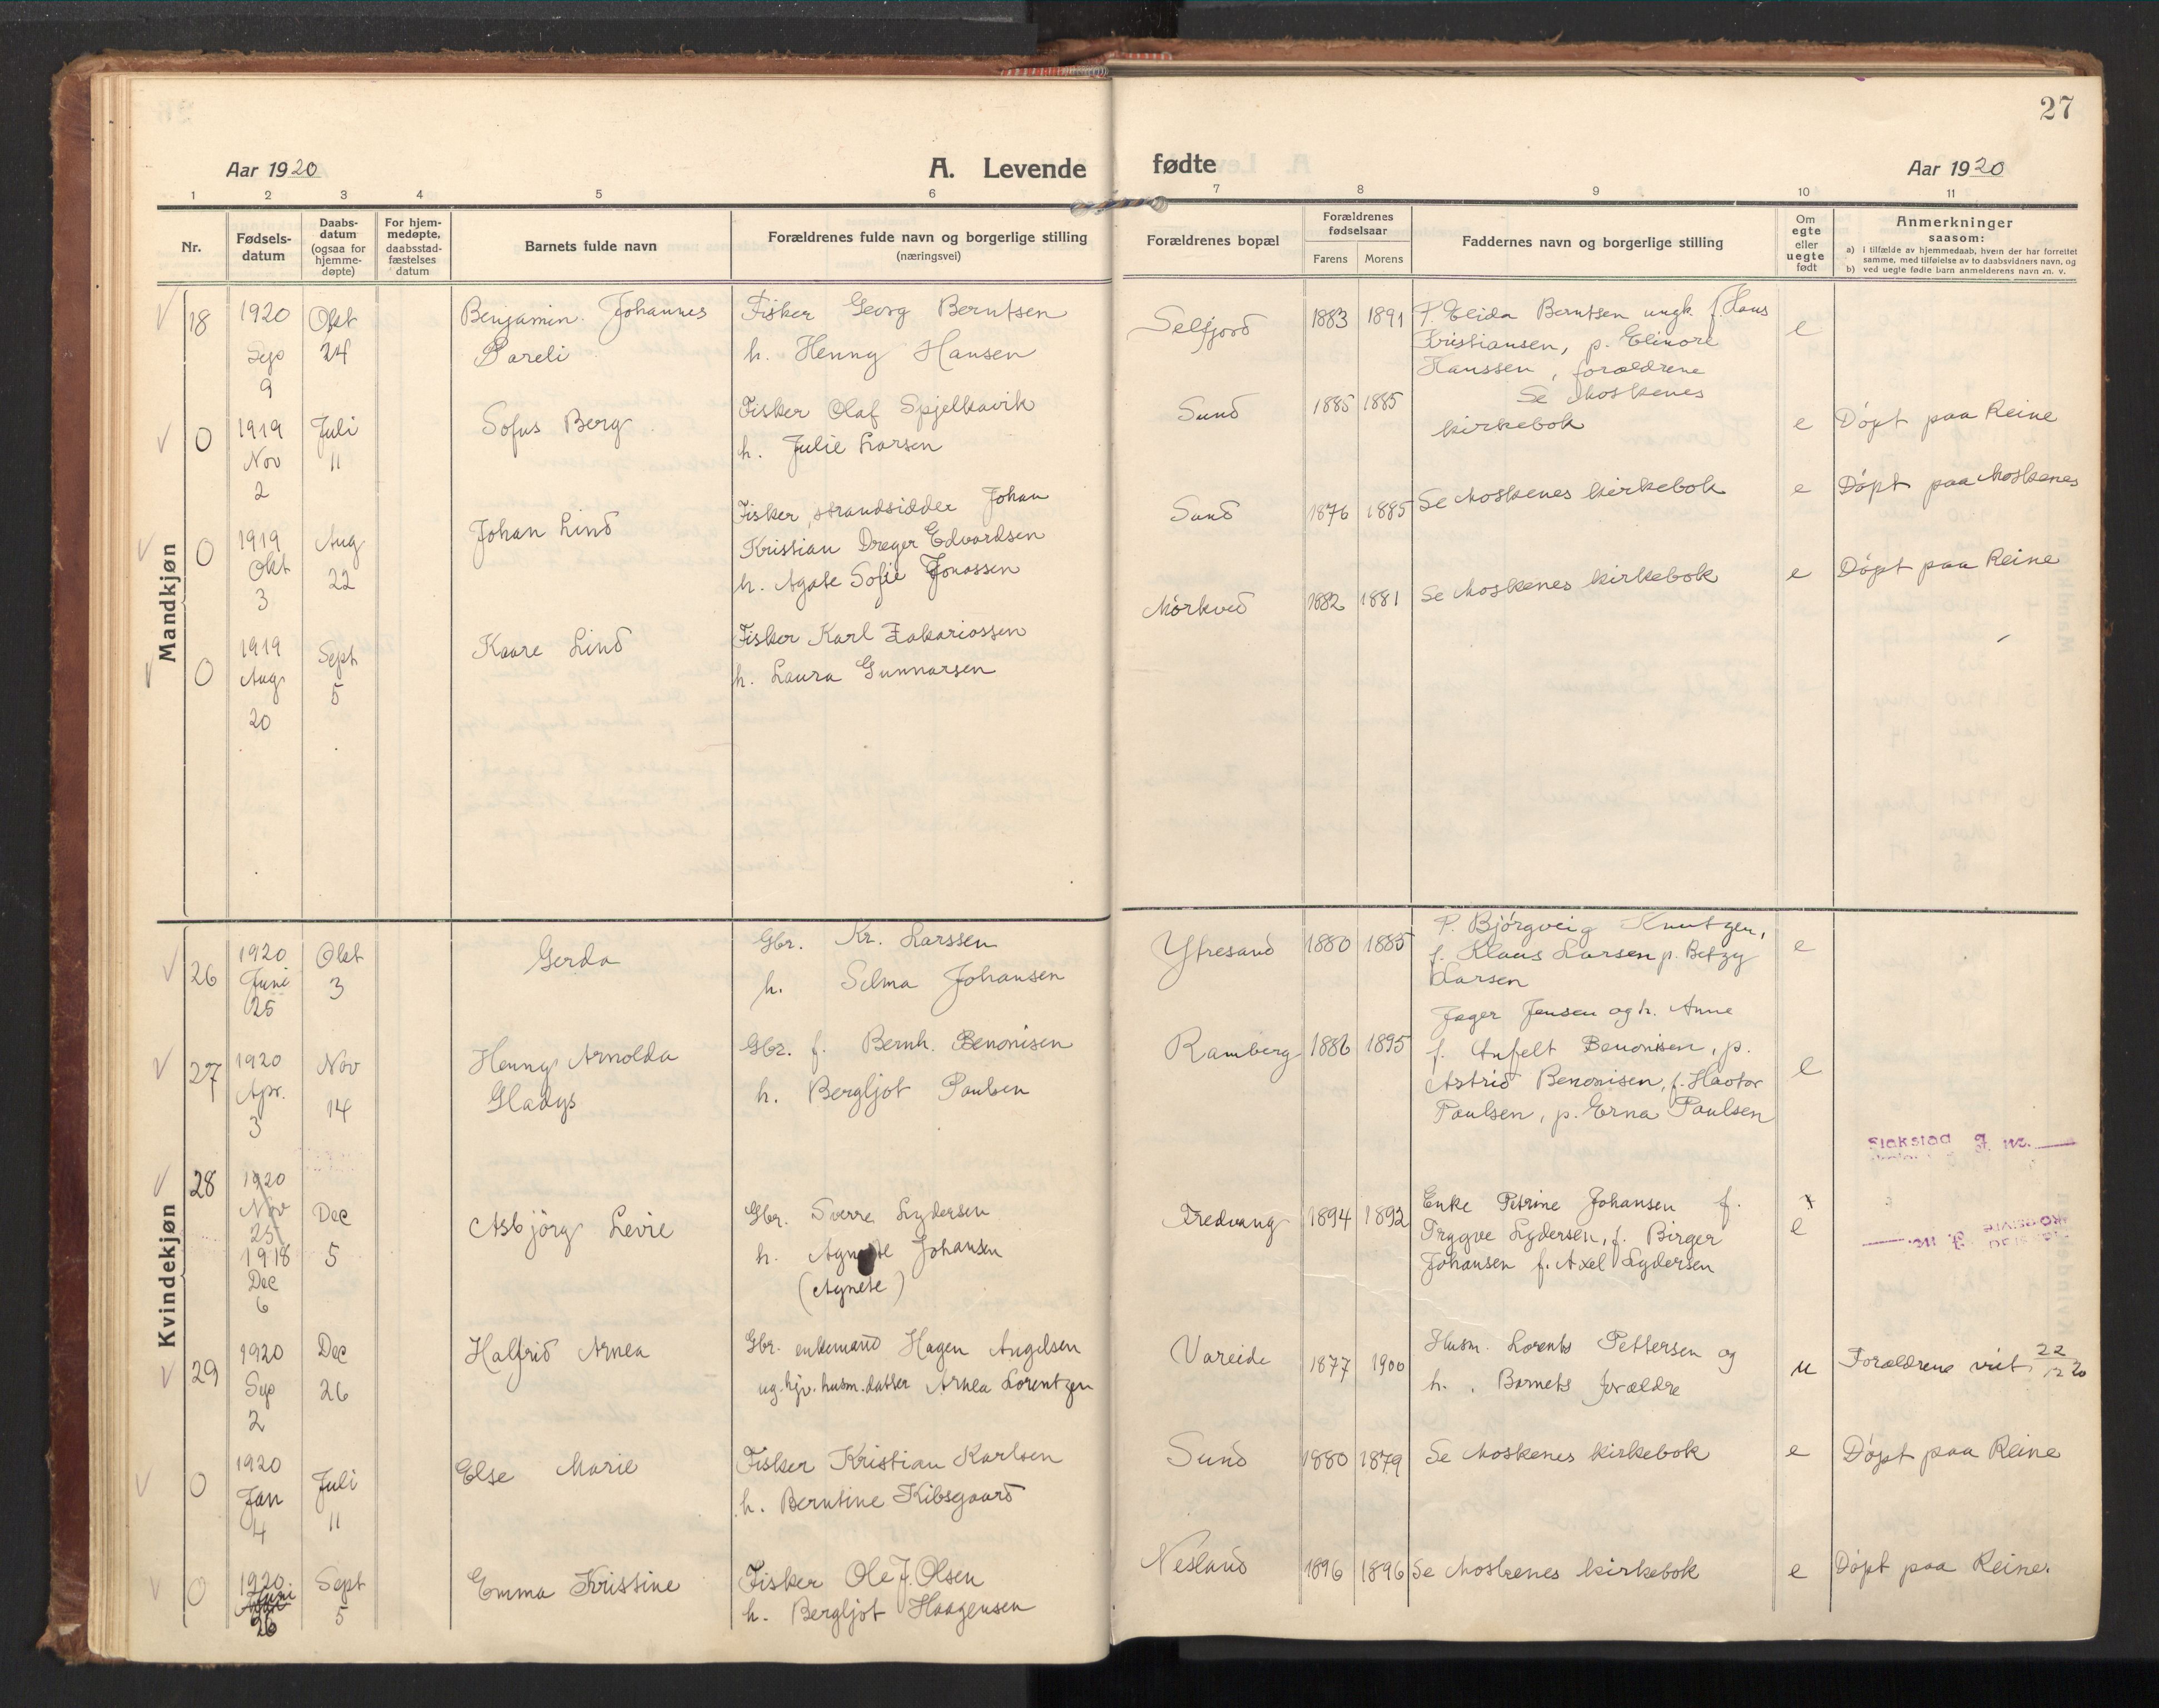 27
Aar 1920
A. Levende
fødte
Aar 1920
1 2 3 4 5 6 7 8 9 10 11
Nr.
Fødsels-
datum
Daabs-
datum
(ogsaa for
hjemme-
døpte)
For hjem-
medøpte,
daabsstad-
fæstelses
datum
Barnets fulde navn
Forældrenes fulde navn og borgerlige stilling
(næringsvei)
Forældrenes bopæl
Forældrenes
fødselsaar
Farens Morens
Faddernes navn og borgerlige stilling
Om
egte
eller
uegte
født
Anmerkninger
saasom:
a) i tilfælde av hjemmedaab, hvem der har forrettet
samme, med tilføielse av to daabsvidners navn, og
b) ved uegte fødte barn anmelderens navn m. v.
Mandkjøn
18
1920
Sep
9
Okt
24
Benjamin Johannes
Pareli
Fisker Georg Berntsen
h. Henny Hansen
Selfjord
1883 1891
P. Elida Berntsen ungk. f. Hans
Kristiansen, p. Elinore
Hanssen, forældrene
e
0
1919
Nov
2
Juli
11
Sofus Berg
Fisker Olaf Spjelkavik
h. Julie Larsen
Sund
1885 1885
Se Moskenes
kirkebok
e
Döpt paa Reine
0
1919
Okt
3
Aug
22
Johan Lind
Fisker, strandsidder Johan
Kristian Dreger Edvardsen
h. Agate Sofie Jonassen
Sund
1876 1885
Se Moskenes kirkebok
e
Döpt paa Moskenes
0
1919
Aug
20
Sept
5
Kaare Lind
Fisker Karl Zakariassen
h. Laura Gunnarsen
Mörkved
1882 1881
Se Moskenes kirkebok
e
Döpt paa Reine
Kvindekjøn
26
1920
Juni
25
Okt
3
Gerda
Gbr. Kr. Larssen
h. Selma Johansen
Ytresand
1880 1885
P. Bjørgveig Knutzen,
f. Klaus Larsen p. Betzy
Larsen
e
27
1920
Apr.
3
Nov
14
Henny Arnolda
Gladys
Gbr. f. Bernh. Benonisen
h. Bergljot Paulsen
Ramberg
1886 1895
Jager Jensen og h. Anne
f. Anfelt Benonisen, p.
Astrid Benonisen, f. Haotor
Paulsen, p. Erna Paulsen
e
Flakstad
28
1920
Nov
25
1918
Dec
6
Dec
5
Asbjörg Levie
Gbr. Sverre Lydersen
h. Johansen
(Agnete)
Fredvang
1894 1892
Enke Petrine Johansen f.
Trygve Lydersen, f. Birger
Johansen f. Axel Lydersen
e
29
1920
Sep
2
Dec
26
Halfrid Arnea
Gbr. enkemand Hagen Angelsen
ug. hjv. husm. datter Arnea Lorentzen
Vareide
1877 1900
Husm. Lorents Pettersen og
h. Barnets forældre
u
Forældrene viet 22/12 20
0
1920
Jan
4
Juli
11
Else Marie
Fisker Kristian Karlsen
h. Berntine Kibsgaard
Sund
1880 1879
Se Moskenes kirkebok
e
Döpt paa Reine
0
1920
Juni
26
Sept
5
Emma Kristine
Fisker Ole J. Olsen
h. Bergljot Haagensen
Nesland
1896 1896
Se Moskenes kirkebok
e
Döpt paa Reine.